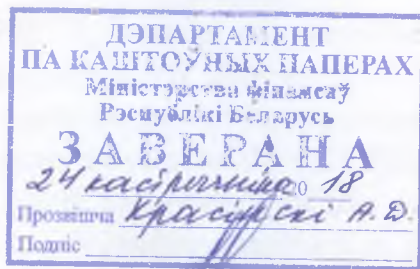 ДЭПАРТАМЕНТ
ПА КАШТОЎНЫХ ПАПЕРАХ
Міністэрства фінансаў
Рэспублікі Беларусь
ЗАВЕРАНА
24 кастрычніка 20 18
Прозвішча Красінскі А. Д.
Подпіс